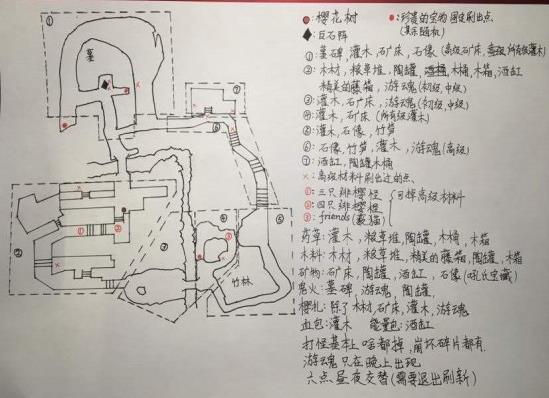 ●:樱花树
●:珍贵的宝物固定刷出点
(其余随机)
◆:巨石阵
①:墓碑,灌木,石矿床,石像(高级石矿床,所有级灌木)
②:木材,粮草堆,陶罐,木桶,木箱,酒缸
精美的藤箱,游魂(初级,中级)
③:灌木,石矿床,游魂(初级,中级)
④:灌木,石矿床(所有级灌木)
⑤:灌木,石像,竹笋
⑥:石像,竹笋,灌木,游魂(高级)
⑦:酒缸,陶罐木桶
×:高级材料刷出过的点
①:三只绯樱怪
②:四只绯樱怪
可掉高级材料
③:friends(豪猫)
药草:灌木,粮草堆,陶罐,木桶,木箱
木料:木材,粮草堆,精美的藤箱,陶罐,木箱
矿物:石矿床,陶罐,酒缸,石像
鬼火:墓碑,游魂,陶罐,
樱札:除了木材,石矿床,灌木,游魂
血包:灌木 能量包:酒缸
打怪基本上啥都掉,崩坏碎片都有.
游魂只在晚上出现
六点昼夜交替(需要退出刷新)
①
墓
⑦
⑥
④
⑤
③
②
①
②
③
竹林